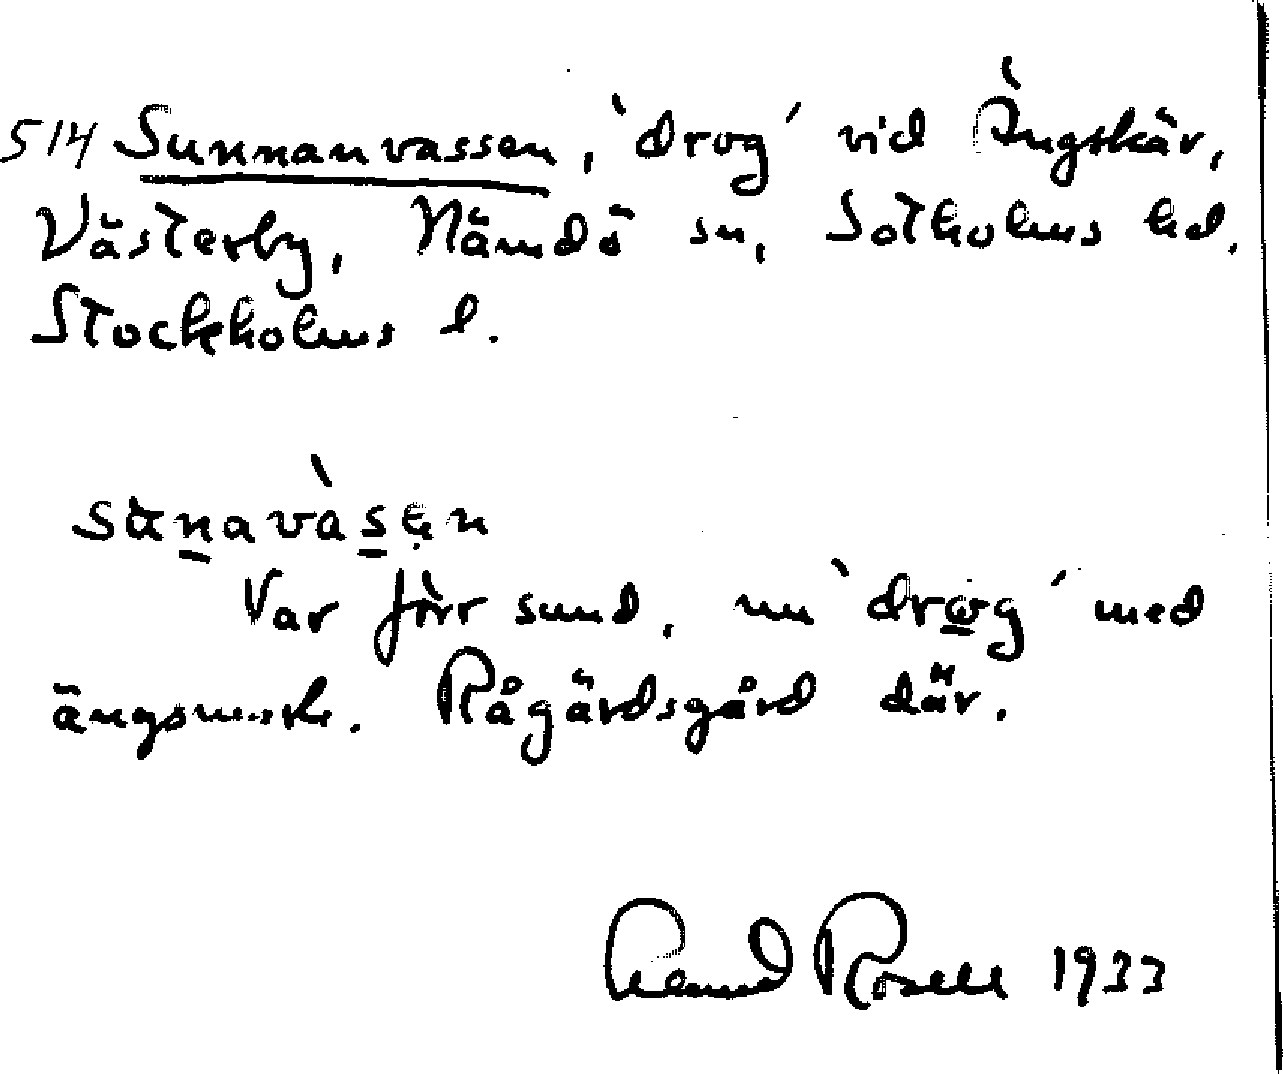 514 Sunnanvassen, `drog´ vid Ängskär,
Västerby, Nämdö sn, Sotholms hd.
Stockholms l.
sunavàsen
Var förr sund, nu `drog´ med
ängsmark. Rågärdsgård där.
Rosell 1933